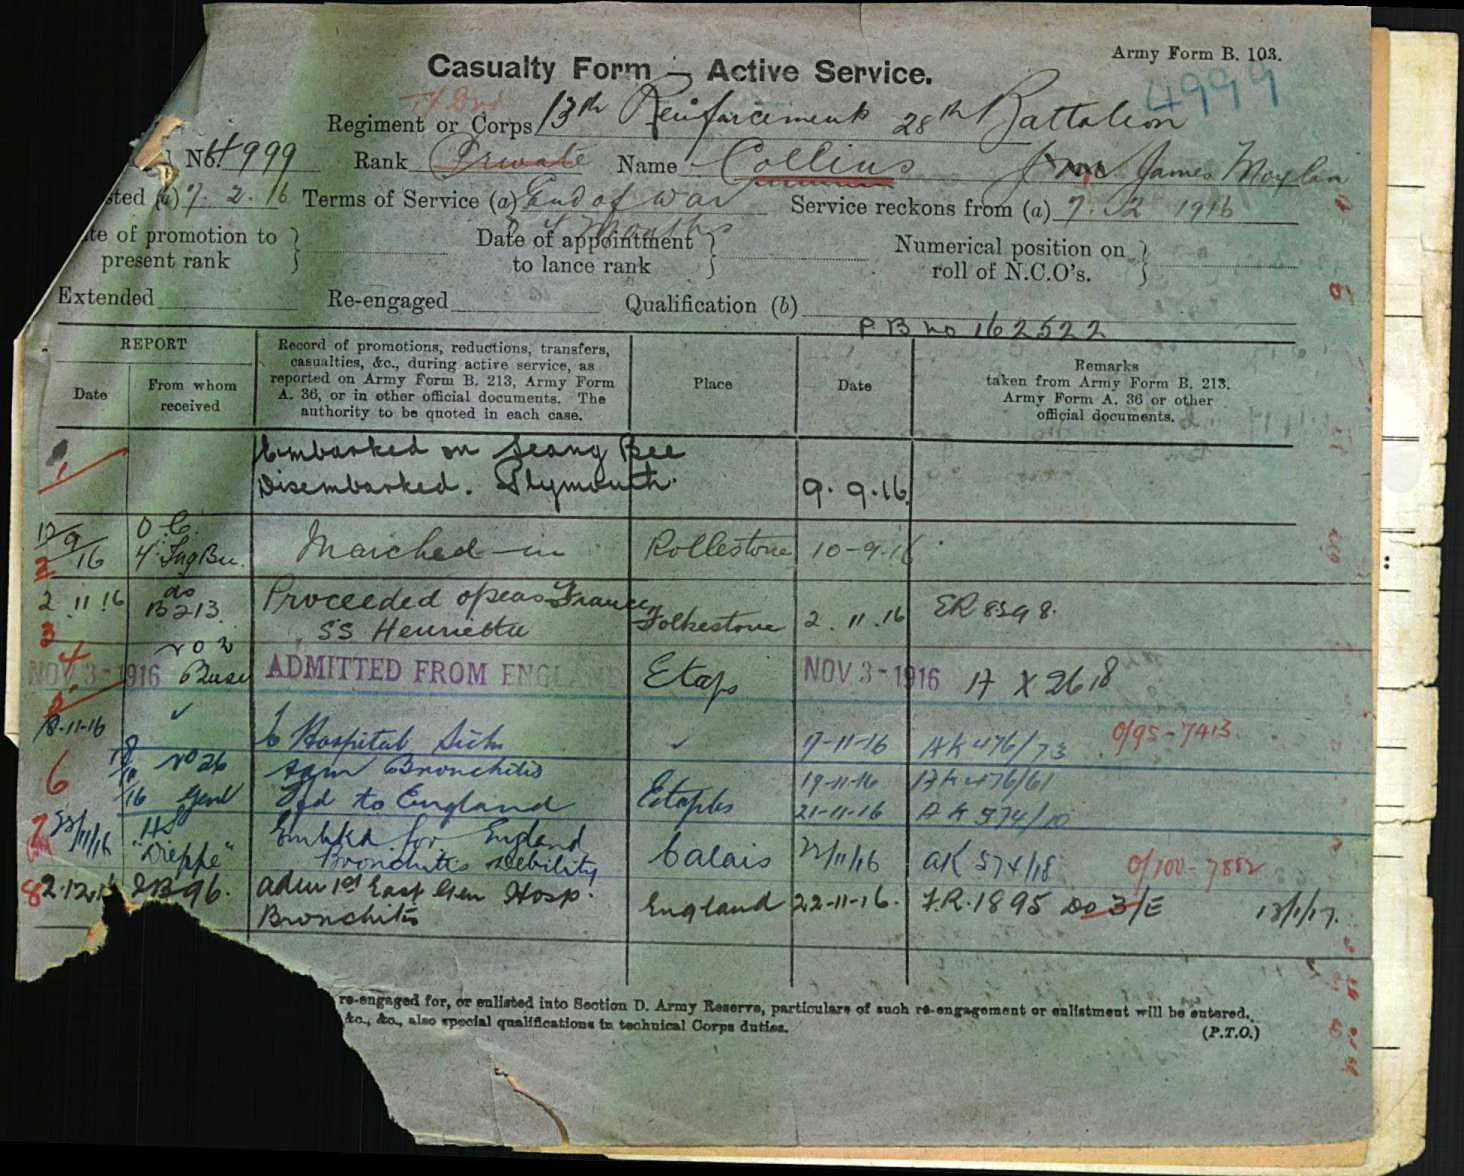 Army Form B. 103.
Casualty Form — Active Service.
4999
Regiment or Corps 13th Reinforcements 28th Battalion
No 4999 Rank Private Name Collins James
(a) 7.2.16 Terms of Service (a) End of War Service reckons from (a) 7.2 1916
4 Months
te of promotion to present rank } Date of appointment to lance rank } Numerical position on roll of N.C.O's. }
Extended Re-engaged Qualification (b)
P B no 162522
REPORT
Date From whom received
Record of promotions, reductions, transfers, casualties, &c., during active service, as reported on Army Form B. 213, Army Form A. 36, or in other official documents. The authority to be quoted in each case.
Place
Date
Remarks taken from Army Form B. 213. Army Form A. 36 or other official documents.
1 Embarked on Seang Bee
Disembarked. Plymouth. 9.9.16
2 12/9/16 O.C. 4 Tng Bn. Marched in Rollestone 10-9-16
3 2.11.16 do B213. Proceeded o/seas France SS Henrietta Folkestone 2.11.16 ER 8598.
4 NOV 3-1916 ADMITTED FROM ENGLAND Etaps NOV 3-1916 A X 2618
5 18-11-16 ✓ to Hospital Sick ✓ 17-11-16 AK 476/73 0/95-7413
6 18/11/16 no 26 Genl Adm Bronchitis 19-11-16 AK 476/61
Tfd to England Etaples 21-11-16 AK 574/10
7 23/11/16 HS "Dieppe" Embkd for England Bronchitis debility Calais 22/11/16 AK 574/18 0/100-7882
8 2.12.16 IB 96. adm 1st East Gen Hosp. Bronchitis England 22-11-16. F.R.1895 Do 3/E 12/1/17.
re-engaged for, or enlisted into Section D. Army Reserve, particulars of such re-engagement or enlistment will be entered.
&c., &c., also special qualifications in technical Corps duties.
(P.T.O.)